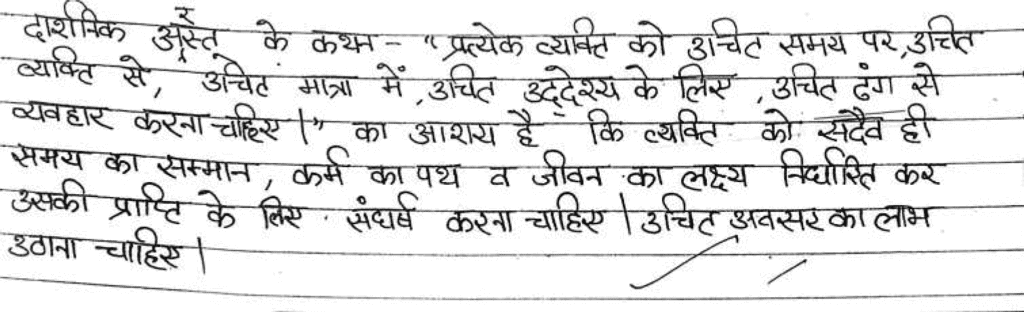 दार्शनिक अरस्तू के कथन - " प्रत्येक व्यक्ति को उचित समय पर, उचित
व्यक्ति से, उचित मात्रा में, उचित उद्देश्य के लिए, उचित ढंग से
व्यवहार करना चाहिए।" का आशय है कि व्यक्ति को सदैव ही
समय का सम्मान, कर्म का पथ व जीवन का लक्ष्य निर्धारित कर
उसकी प्राप्ति के लिए संघर्ष करना चाहिए। उचित अवसर का लाभ
उठाना चाहिए।